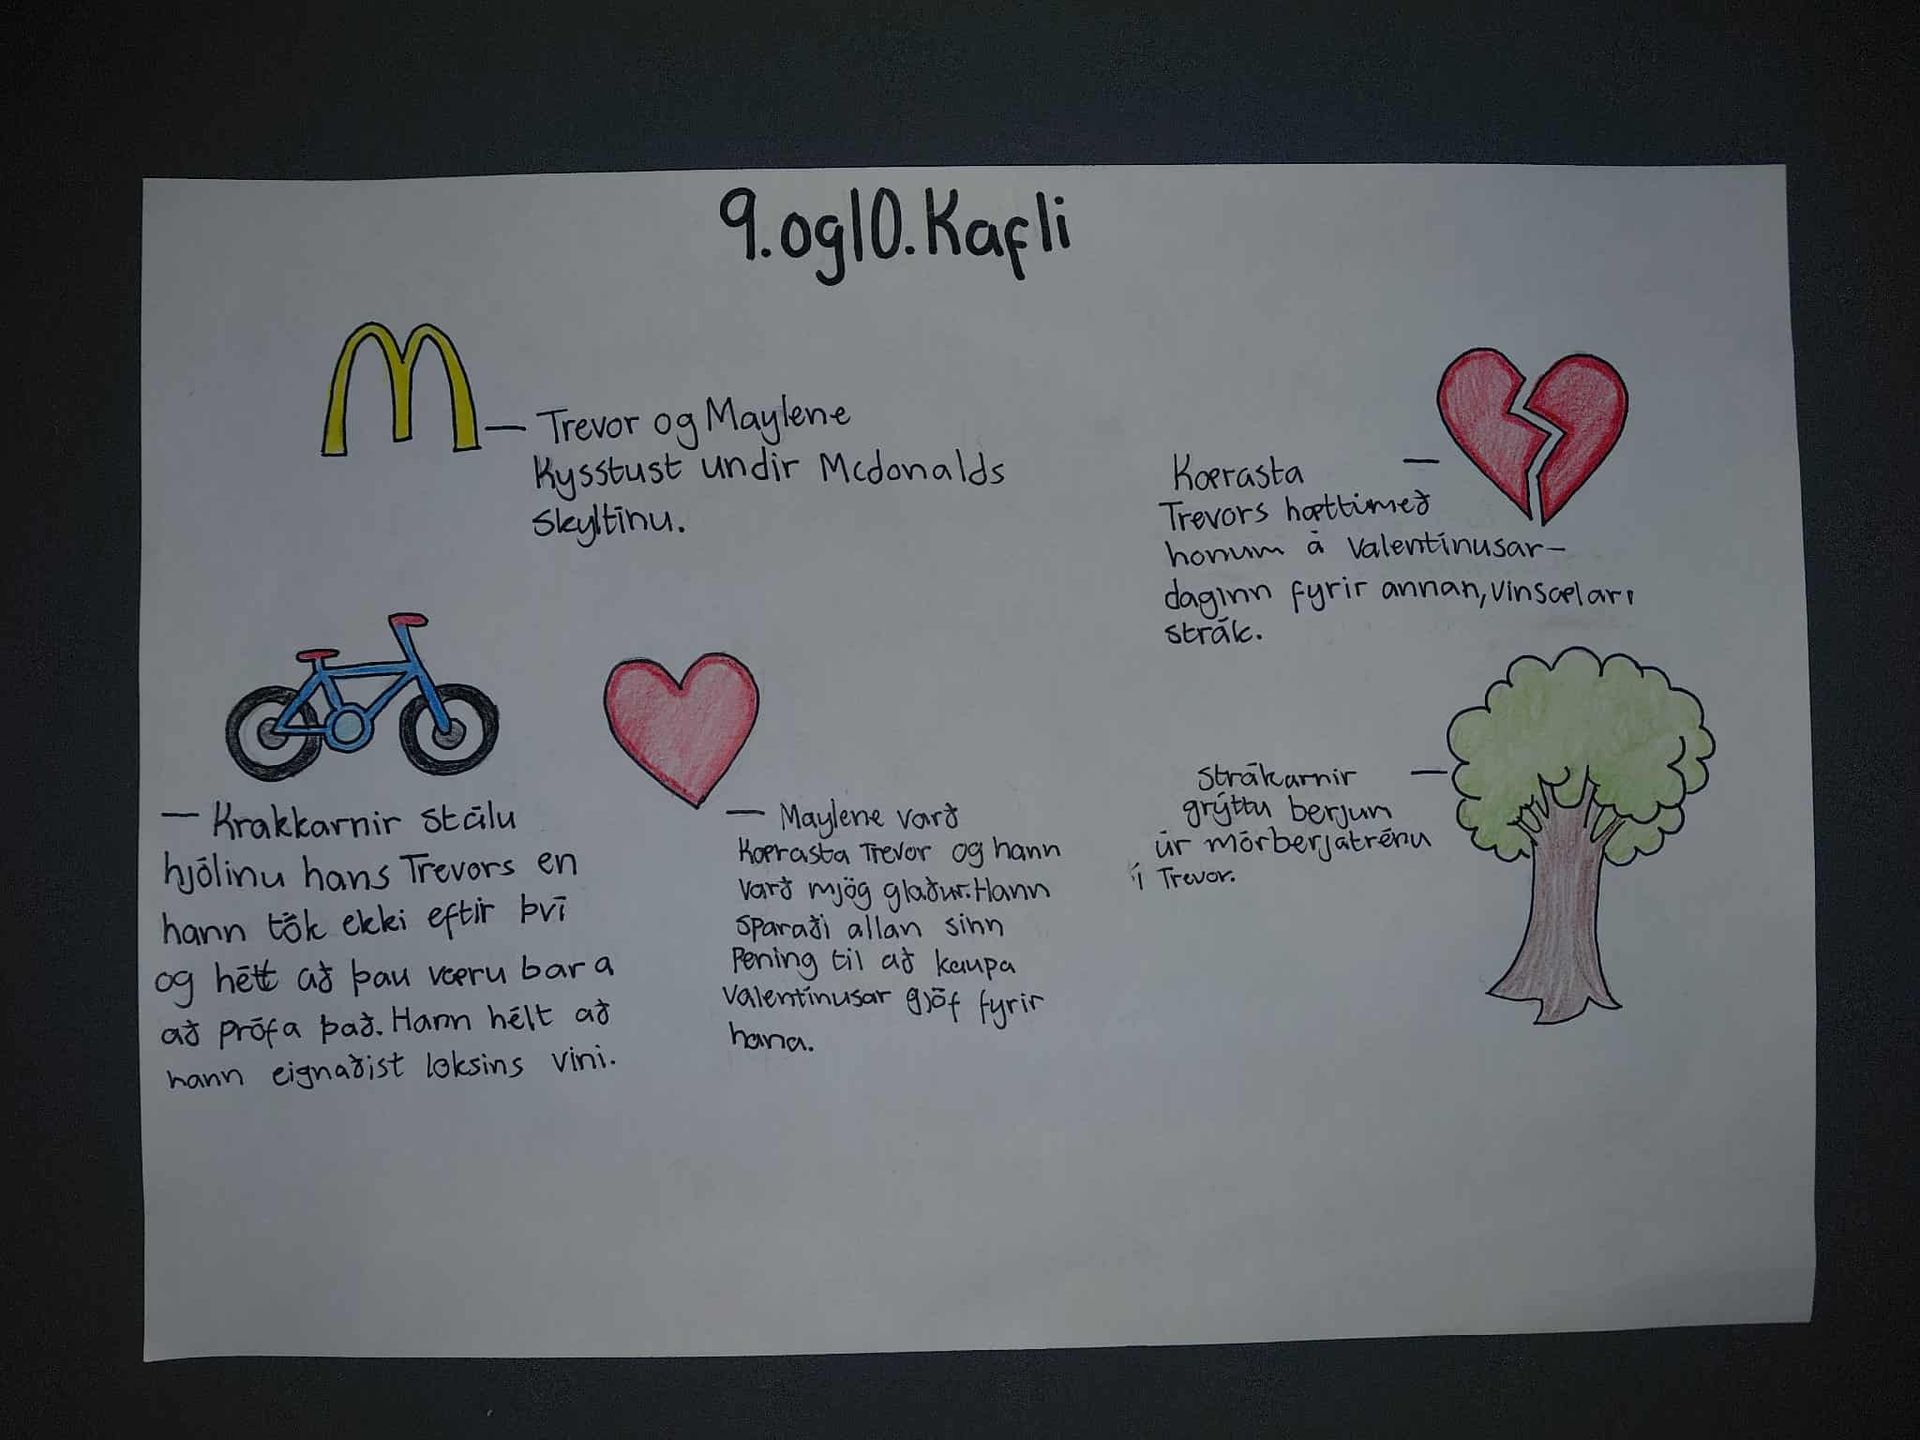 9. og 10. Kafli
Trevor og Maylene
kysstust undir Mcdonalds
skyltinu.
Kærasta
Trevors hætti með
honum á Valentínusar-
daginn fyrir annan, vinsælari
strák.
Krakkarnir stálu
hjólinu hans Trevors en
hann tók ekki eftir því
og hétt að þau væru bara
að prófa það. Hann hélt að
hann eignaðist loksins vini.
Maylene varð
kærasta Trevor og hann
varð mjög glaður. Hann
sparaði allan sinn
pening til að kaupa
Valentínusar gjöf fyrir
hana.
Strákarnir
grýttu berjum
úr mórberjatrénu
í Trevor.